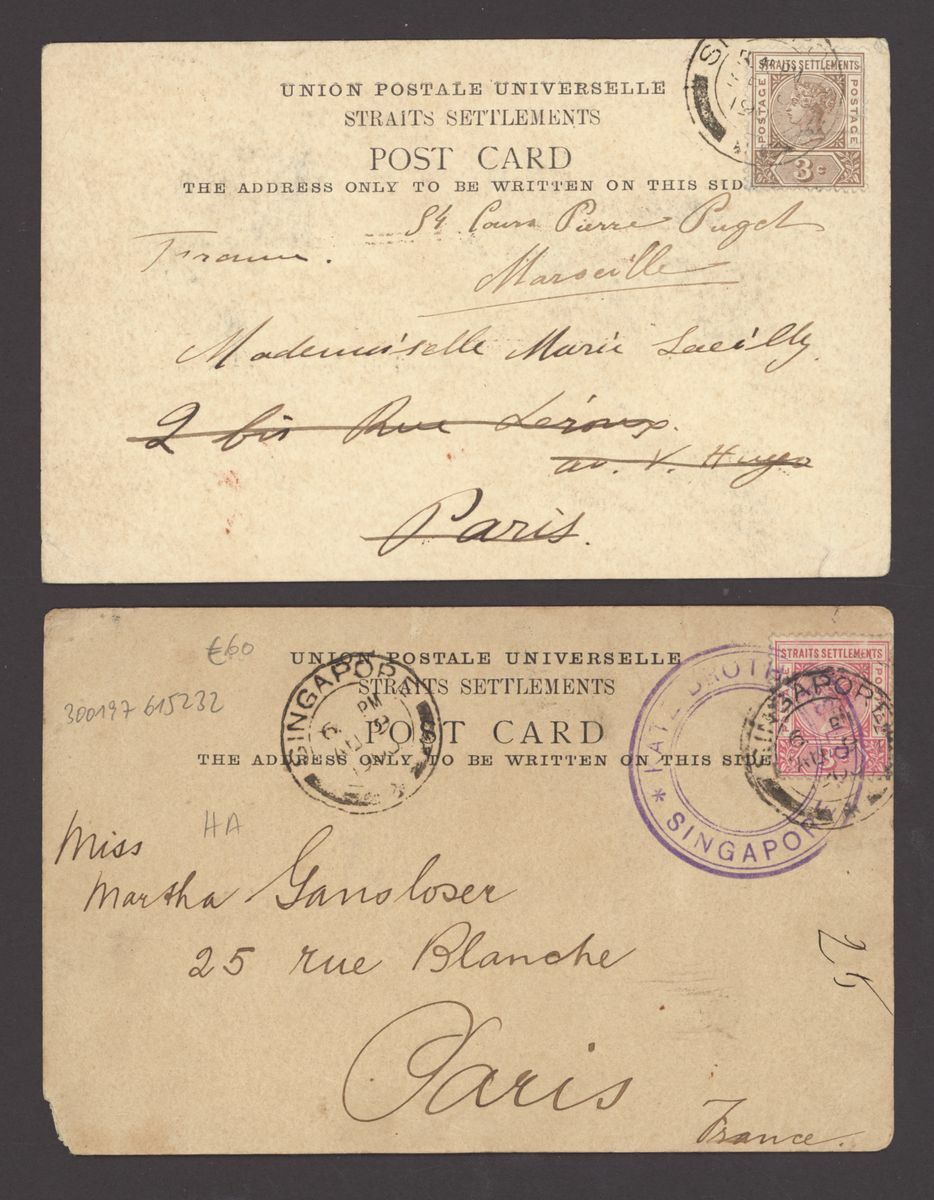 UNION POSTALE UNIVERSELLE
STRAITS SETTLEMENTS
POST CARD
THE ADDRESS ONLY TO BE WRITTEN ON THIS SID
STRAITS SETTLEMENTS
POSTAGE
POSTAGE
3c
Cours Pierre Puget
France.
Marseille
Mademoiselle Marie
2 bis Rue Leroux.
av. V. Hugo
Paris.
€60
UNION POSTALE UNIVERSELLE
300197 615232
STRAITS SETTLEMENTS
POST CARD
THE ADDRESS ONLY TO BE WRITTEN ON THIS SIDE
SINGAPORE
PM
* SINGAPOR
STRAITS SETTLEMENTS
SINGAPORE
3c
HA
Miss
Martha Gansloser
25 rue Blanche
Paris
France.
25